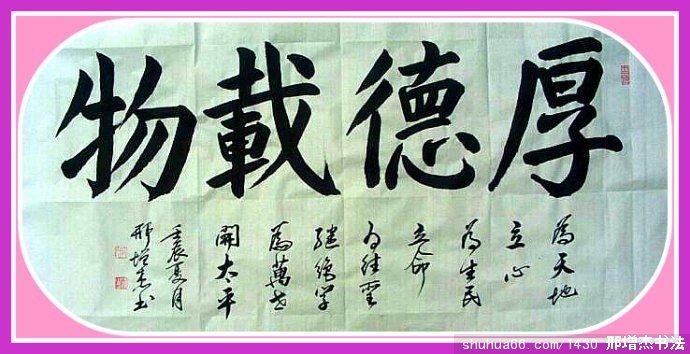 厚德載物
為天地
立心
为生民
立命
为往聖
继绝学
為萬世
開太平
壬辰夏月
邢增杰书
shuhua66.com/1430 邢增杰书法